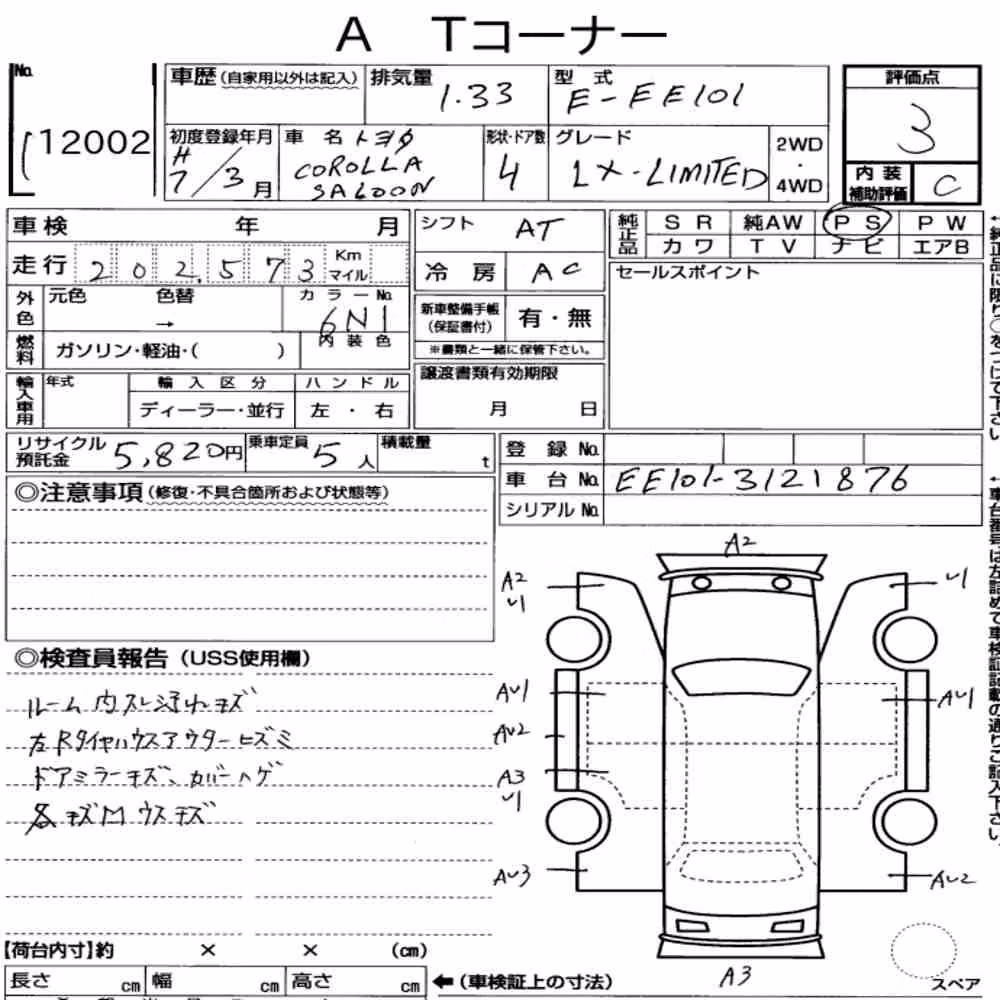 A Tコーナー
No.
12002
車歴(自家用以外は記入)
排気量
1.33
型式
E-EE101
評価点
3
初度登録年月
H
7/3月
車名 トヨタ
COROLLA
SALOON
形状・ドア数
4
グレード
LX-LIMITED
2WD
・
4WD
内装
補助評価
C
車検 年 月
走行 202,573 Km
マイル
外色
元色 色替
→
カラーNo.
6N1
内装色
燃料
ガソリン・軽油・( )
輸入車用
年式
輸入区分
ディーラー・並行
ハンドル
左・右
シフト AT
冷房 AC
新車整備手帳
(保証書付)
有・無
※書類と一緒に保管下さい。
譲渡書類有効期限
月 日
純正品
SR 純AW PS PW
カワ TV ナビ エアB
セールスポイント
リサイクル
預託金 5,820円
乗車定員 5人
積載量 t
登録No.
車台No. EE101-3121876
シリアルNo.
◎注意事項(修復・不具合箇所および状態等)
◎検査員報告(USS使用欄)
ルーム内スレ汚れキズ
左Rタイヤハウスアウターヒズミ
ドアミラーキズ、カバーハゲ
各キズM ウスキズ
A2
A2
U1
U1
AU1
AU1
AU2
A3
U1
AU3
AU2
A3
スペア
【荷台内寸】約 × × (cm)
長さ cm 幅 cm 高さ cm
←(車検証上の寸法)
↑純正品に限り○をつけて下さい
↑車台番号は左詰めで車検証記載の通りご記入下さい。